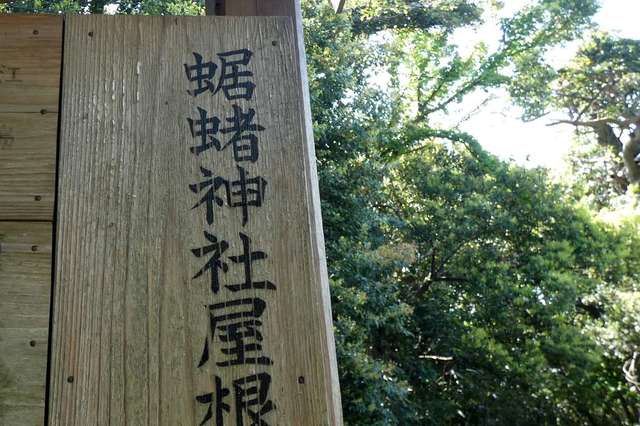 蜛蝫神社屋根